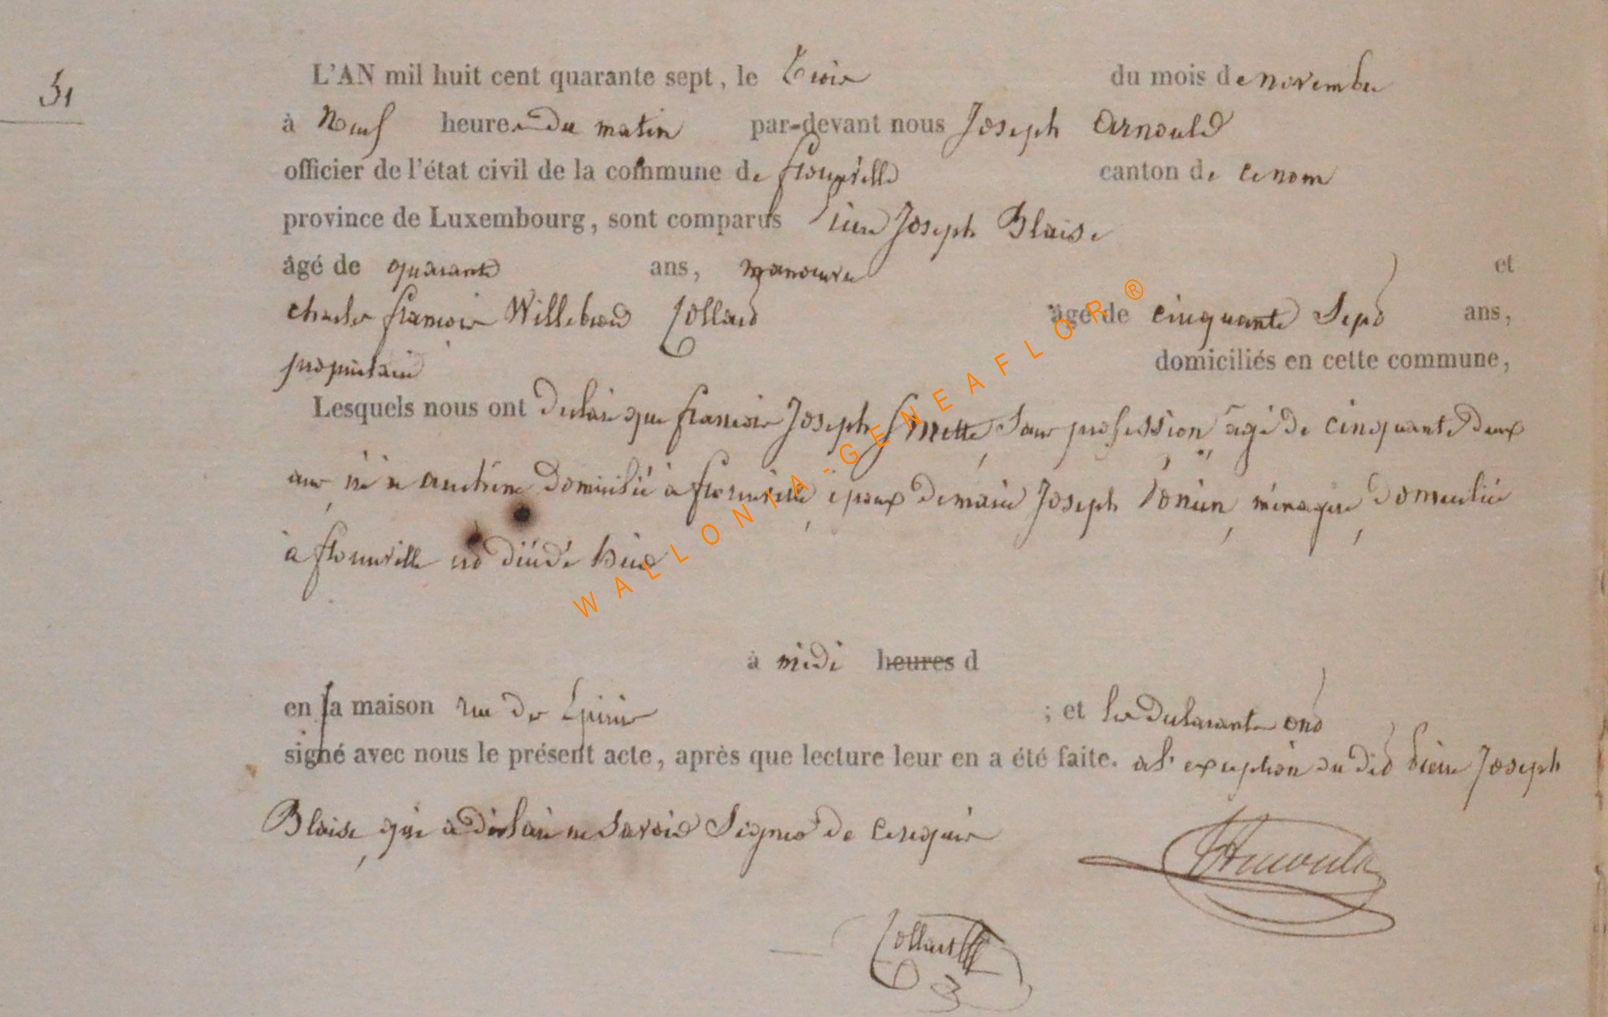 31
L'AN mil huit cent quarante sept, le trois du mois de novembre
à Neuf heures du matin par-devant nous Joseph Arnould
officier de l'état civil de la commune de florenville canton de ce nom
province de Luxembourg, sont comparus Pierre Joseph Blaise
âgé de quarante ans, manoeuvre et
charles françois Willebrord Collard âgé de cinquante Sept ans,
propriétaire domiciliés en cette commune,
Lesquels nous ont declaré que françois Joseph Sans profession âgé de cinquante deux
ans né a domicilié à florenville epoux de marie Joseph ménagère domiciliée
à florenville est décédé hier
à midi heures d
en sa maison rue des Epines ; et les declarants ont
signé avec nous le présent acte, après que lecture leur en a été faite. a l'exception du dit Pierre Joseph
Blaise, qui a déclaré ne savoir Signer de ce requis
JArnould
Collard
WALLONIA-GENEAFLOR ®